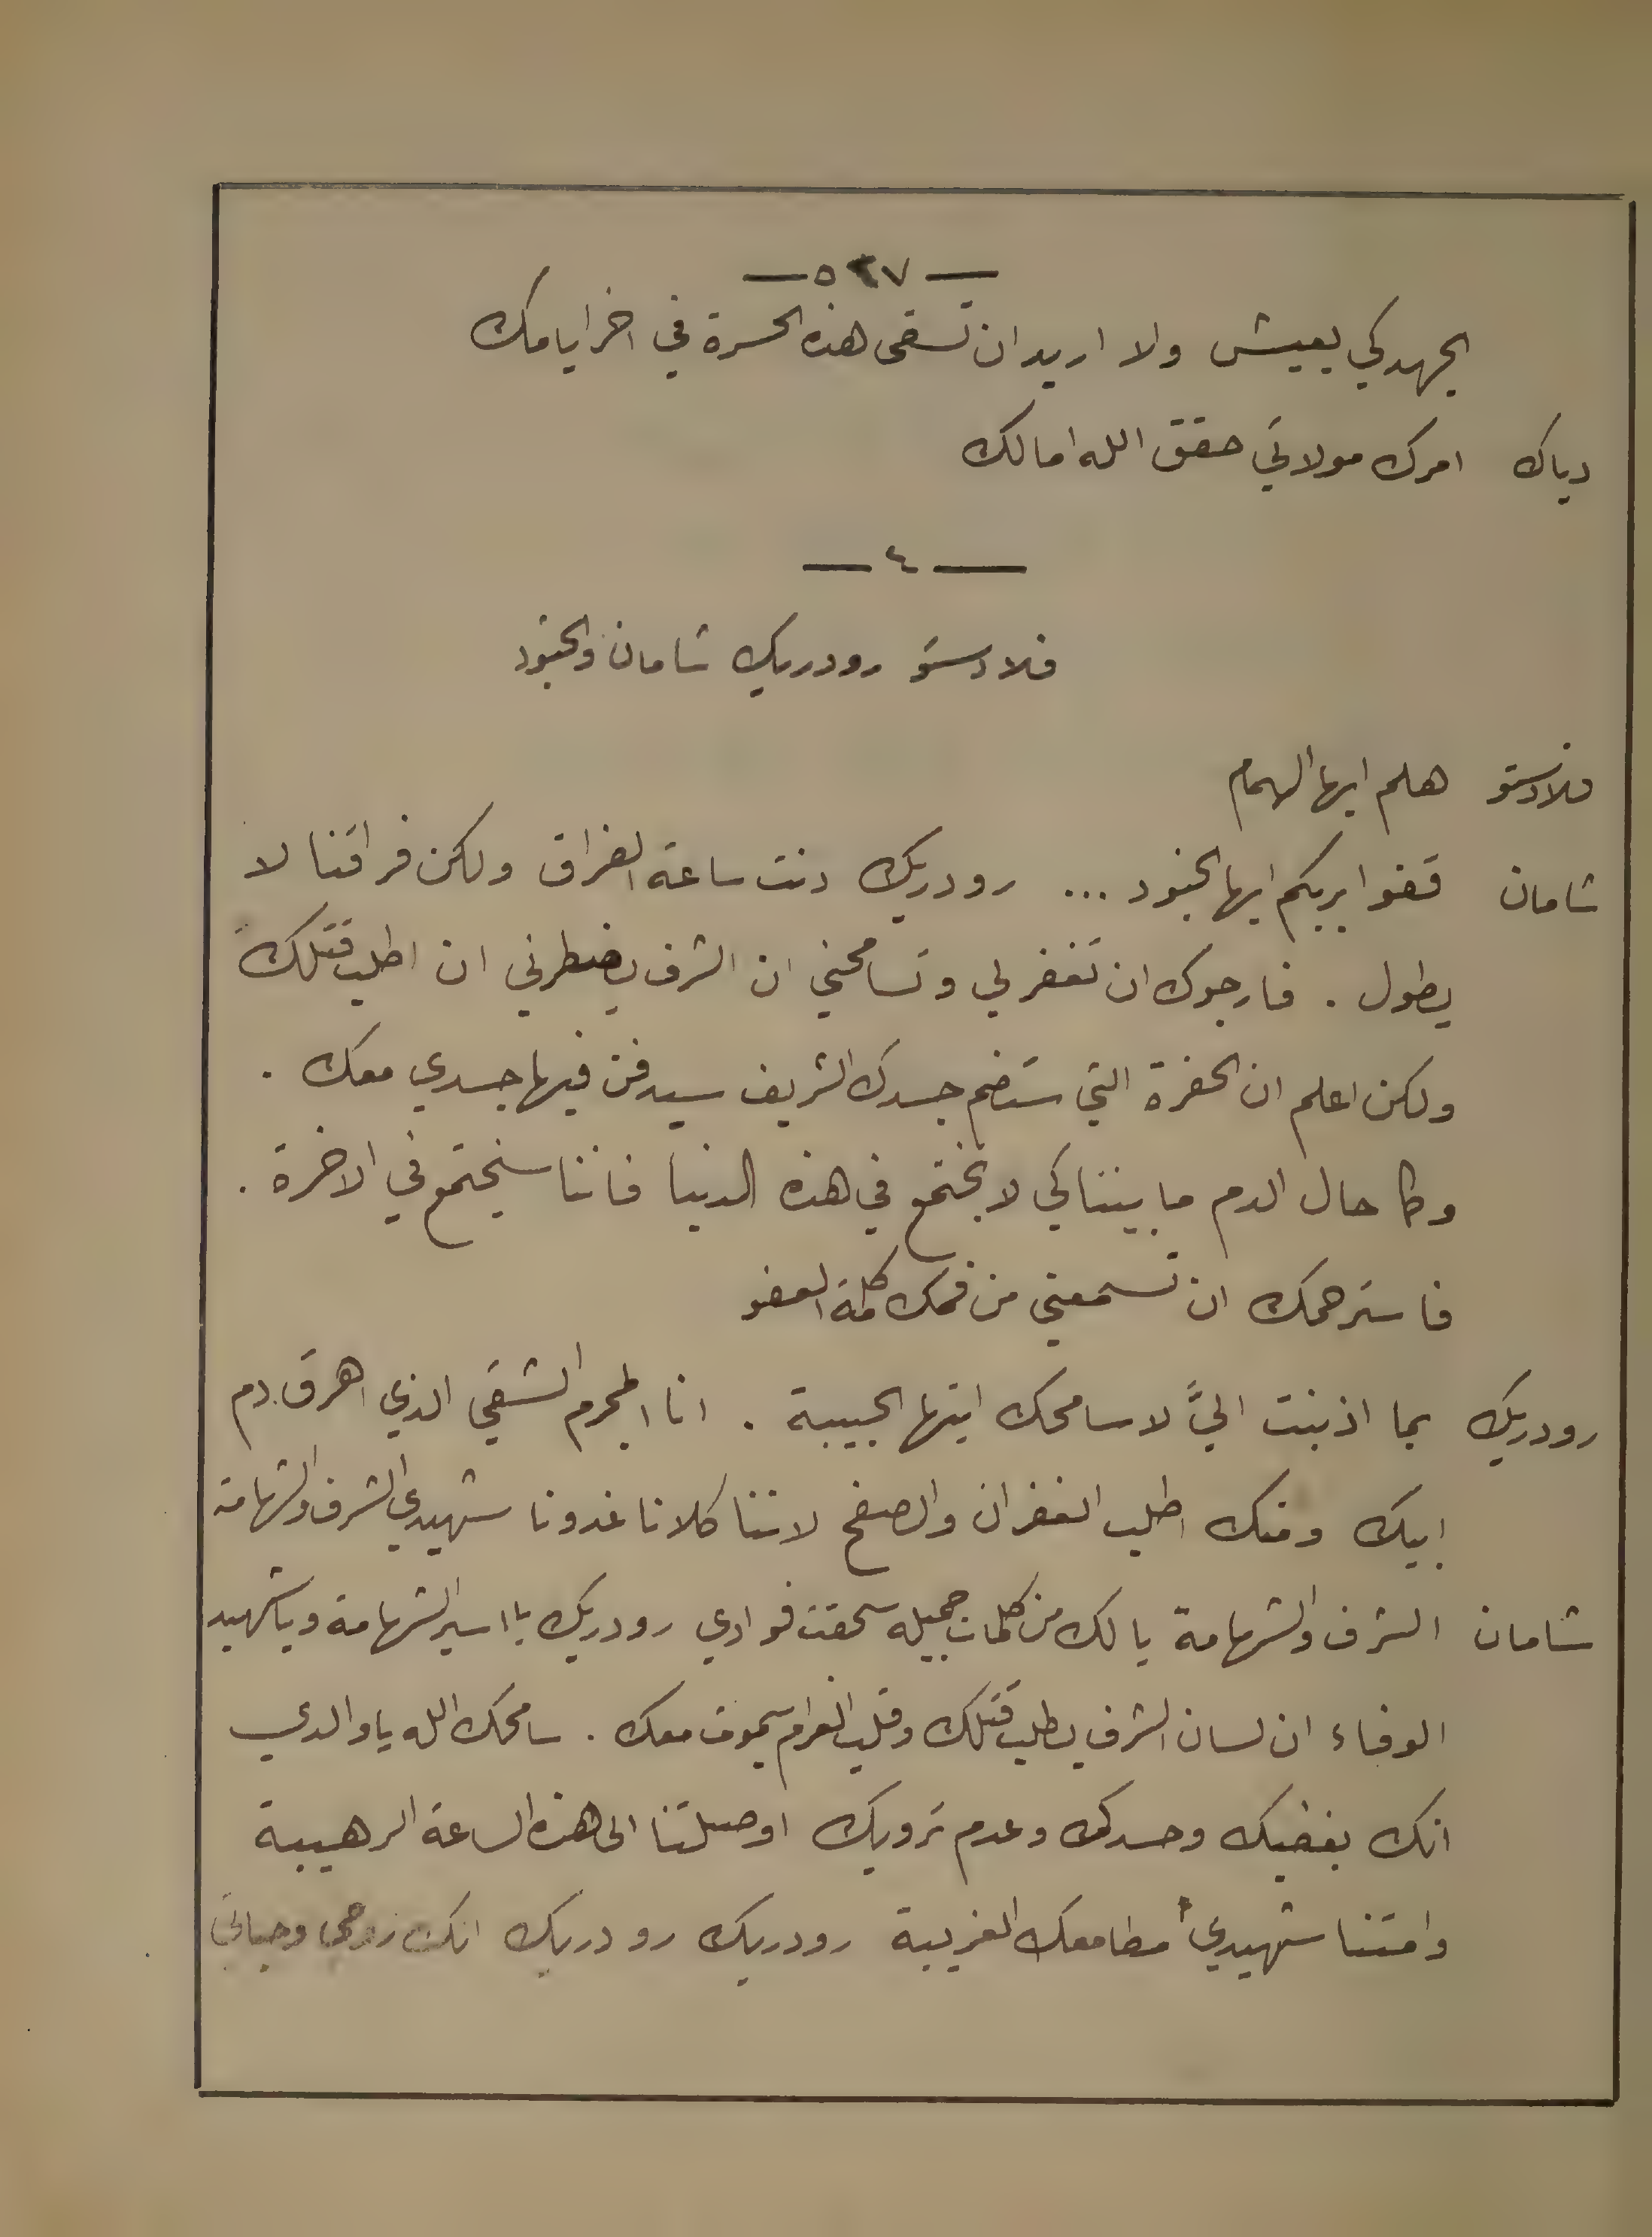 — ٥٢٧ —
الجهد كي يعيش ولا اريد ان تسقى هذه الحسرة في اخر ايامك
دياك امرك مولاتي حقق الله امالك
— ٤ —
فلادستو رودريك شامان والجنود
فلادستو هلم ايها الهمام
شامان قفوا بربكم ايها الجنود ... رودريك دنت ساعة الفراق ولكن فراقنا لا
يطول . فارجوك ان تغفر لي وتسامحني ان الشرف يضطرني ان اطلب قتلك
ولكن اعلم ان الحفرة التي ستضم جسدك الشريف سيدفن فيها جسدي معك .
وكما حال الدم ما بيننا كي لا نجتمع في هذه الدنيا فاننا سنجتمع في الاخرة .
فاسترحمك ان تسمعني من فمك كلمة العفو
رودريك بما اذنبت اليَّ لاسامحك ايتها الحبيبة . انا المجرم الشقي الذي اهرق دم
ابيك ومنك اطلب الغفران والصفح لاننا كلانا غدونا شهيدي الشرف والشهامة
شامان الشرف والشهامة يا لك من كلمات جميله سحقت فوادي رودريك يا اسير الشهامة ويا شهيد
الوفاء ان لسان الشرف يطلب قتلك وقلب الغرام سيموت معك . سامحك الله يا والدي
انك بغضبك وحسدك وعدم ترويك اوصلتنا الى هذه الساعة الرهيبة
وامتنا شهيدي مطامعك الغريبة رودريك رودريك انك روحي وحياتي